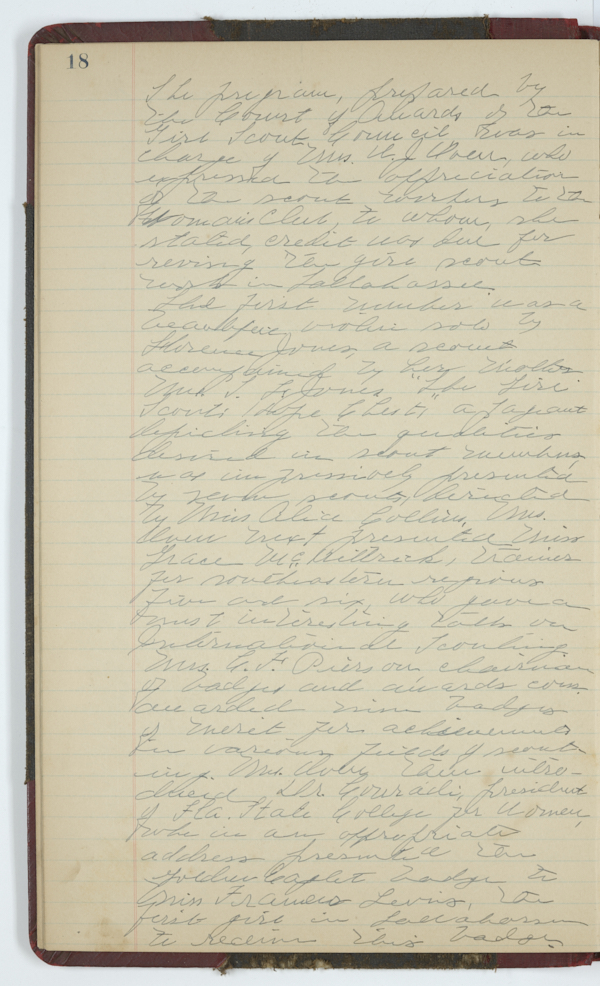 18
The program, prepared by
the Court of Awards of the
Girl Scout Council was in
charge of Mrs. W. J. Oven, who
expressed the appreciation
of the scout workers to the
Woman's Club, to whom, she
stated, credit was due for
reviving the girl scout
work in Tallahassee.
The first number was a
beautiful violin solo by
Florence Jones, a scout
accompanied by her mother
Mrs. J. L. Jones. "The Girl
Scouts Hope Chest," a pageant
depicting the qualities
desired in scout members,
was impressively presented
by seven scouts, directed
by Miss Alice Collins, Mrs.
Oven next presented Miss
Grace McKittrick, trainer
for southeastern regions
five and six, who gave a
most interesting talk on
International Scouting.
Mrs. C. F. Pierson chairman
of badges and awards com.
awarded nine badges
of merit for achievement
in various fields of scout-
ing. Mrs. Oven then intro-
duced Dr. Conradi, president
of Fla. State College for Women,
who in an appropriate
address presented the
golden eaglet badge to
Miss Frances Lewis, the
first girl in Tallahassee
to receive this badge.